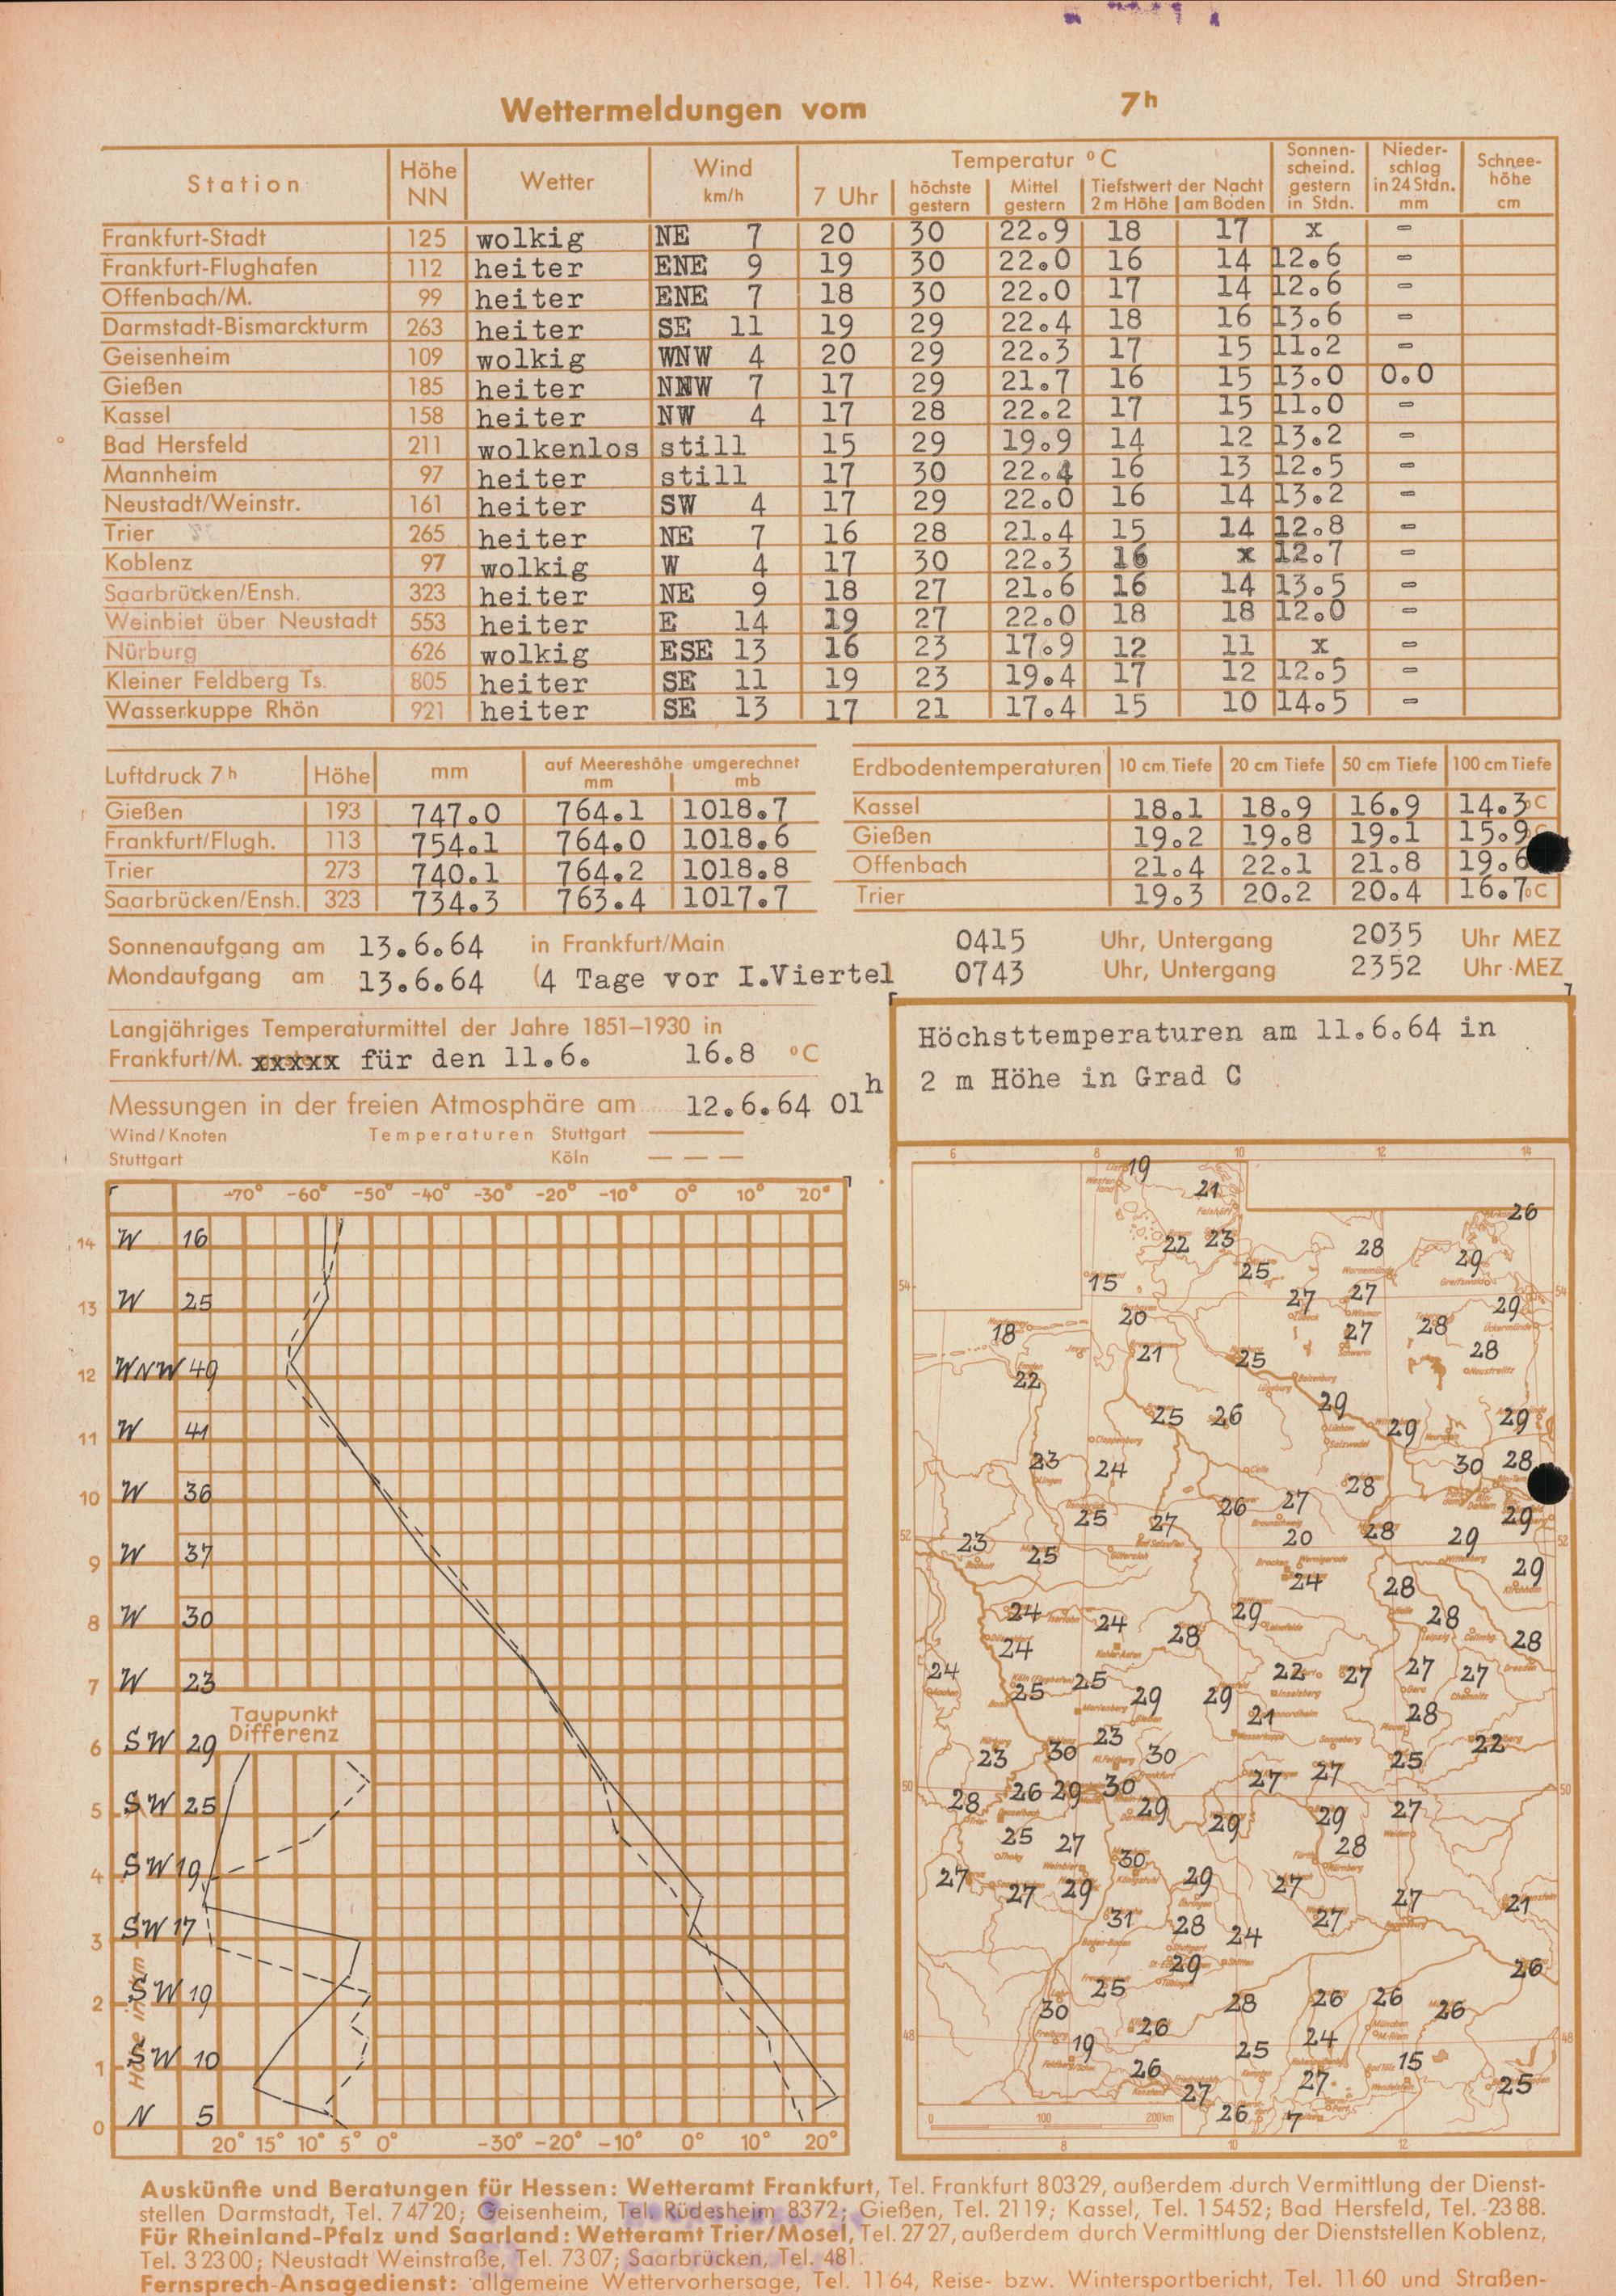 Wettermeldungen vom 7h
Station Höhe NN Wetter Wind km/h Temperatur °C Sonnenscheind. gestern in Stdn. Niederschlag in 24 Stdn. mm Schneehöhe cm
7 Uhr höchste gestern Mittel gestern Tiefstwert der Nacht 2 m Höhe am Boden
Frankfurt-Stadt 125 wolkig NE 7 20 30 22.9 18 17 x -
Frankfurt-Flughafen 112 heiter ENE 9 19 30 22.0 16 14 12.6 -
Offenbach/M. 99 heiter ENE 7 18 30 22.0 17 14 12.6 -
Darmstadt-Bismarckturm 263 heiter SE 11 19 29 22.4 18 16 13.6 -
Geisenheim 109 wolkig WNW 4 20 29 22.3 17 15 11.2 -
Gießen 185 heiter NNW 7 17 29 21.7 16 15 13.0 0.0
Kassel 158 heiter NW 4 17 28 22.2 17 15 11.0 -
Bad Hersfeld 211 wolkenlos still 15 29 19.9 14 12 13.2 -
Mannheim 97 heiter still 17 30 22.4 16 13 12.5 -
Neustadt/Weinstr. 161 heiter SW 4 17 29 22.0 16 14 13.2 -
Trier 265 heiter NE 7 16 28 21.4 15 14 12.8 -
Koblenz 97 wolkig W 4 17 30 22.3 16 x 12.7 -
Saarbrücken/Ensh. 323 heiter NE 9 18 27 21.6 16 14 13.5 -
Weinbiet über Neustadt 553 heiter E 14 19 27 22.0 18 18 12.0 -
Nürburg 626 wolkig ESE 13 16 23 17.9 12 11 x -
Kleiner Feldberg Ts. 805 heiter SE 11 19 23 19.4 17 12 12.5 -
Wasserkuppe Rhön 921 heiter SE 13 17 21 17.4 15 10 14.5 -
Luftdruck 7h Höhe mm auf Meereshöhe umgerechnet mm mb
Gießen 193 747.0 764.1 1018.7
Frankfurt/Flugh. 113 754.1 764.0 1018.6
Trier 273 740.1 764.2 1018.8
Saarbrücken/Ensh. 323 734.3 763.4 1017.7
Erdbodentemperaturen 10 cm Tiefe 20 cm Tiefe 50 cm Tiefe 100 cm Tiefe
Kassel 18.1 18.9 16.9 14.3 °C
Gießen 19.2 19.8 19.1 15.9
Offenbach 21.4 22.1 21.8 19.6
Trier 19.3 20.2 20.4 16.7 °C
Sonnenaufgang am 13.6.64 in Frankfurt/Main 0415 Uhr, Untergang 2035 Uhr MEZ
Mondaufgang am 13.6.64 (4 Tage vor I.Viertel 0743 Uhr, Untergang 2352 Uhr MEZ
Langjähriges Temperaturmittel der Jahre 1851–1930 in
Frankfurt/M. xxxxx für den 11.6. 16.8 °C
Messungen in der freien Atmosphäre am 12.6.64 01h
Wind/Knoten Temperaturen Stuttgart
Stuttgart Köln
Höchsttemperaturen am 11.6.64 in
2 m Höhe in Grad C
-70° -60° -50° -40° -30° -20° -10° 0° 10° 20°
14 W 16
13 W 25
12 WNW 49
11 W 41
10 W 36
9 W 37
8 W 30
7 W 23
Taupunkt
Differenz
6 SW 29
5 SW 25
4 SW 19
3 SW 17
2 SW 19
1 SW 10
0 N 5
Höhe in km
20° 15° 10° 5° 0° -30° -20° -10° 0° 10° 20°
6 8 10 12 14
19
21
26
22 23 28 29
15 25
54 27 27 29 54
18 20 27 28
21 25 28
22
25 26 29 29 29
23 24 30 28
28
25 27 26 27
20 28 29 29
52 23 25 52
24 28 29
24 24 29 28
24 28 28
24 25 25 22 27 27 27
29 29 21 28
23 30 23 30 25 22
50 28 26 29 30 27 27 50
29 29 29 27
25 27 30 28
27 27 29 29 27 27 21
31 28 24 27
29 26
25 28 26 26 26
30 26 24
48 19 25 15 48
26 27 27 25
26 7
0 100 200 km
8 10 12
Auskünfte und Beratungen für Hessen: Wetteramt Frankfurt, Tel. Frankfurt 80329, außerdem durch Vermittlung der Dienst-
stellen Darmstadt, Tel. 74720; Geisenheim, Tel. Rüdesheim 8372; Gießen, Tel. 2119; Kassel, Tel. 15452; Bad Hersfeld, Tel. 2388.
Für Rheinland-Pfalz und Saarland: Wetteramt Trier/Mosel, Tel. 2727, außerdem durch Vermittlung der Dienststellen Koblenz,
Tel. 32300; Neustadt Weinstraße, Tel. 7307; Saarbrücken, Tel. 481.
Fernsprech-Ansagedienst: allgemeine Wettervorhersage, Tel. 1164, Reise- bzw. Wintersportbericht, Tel. 1160 und Straßen-